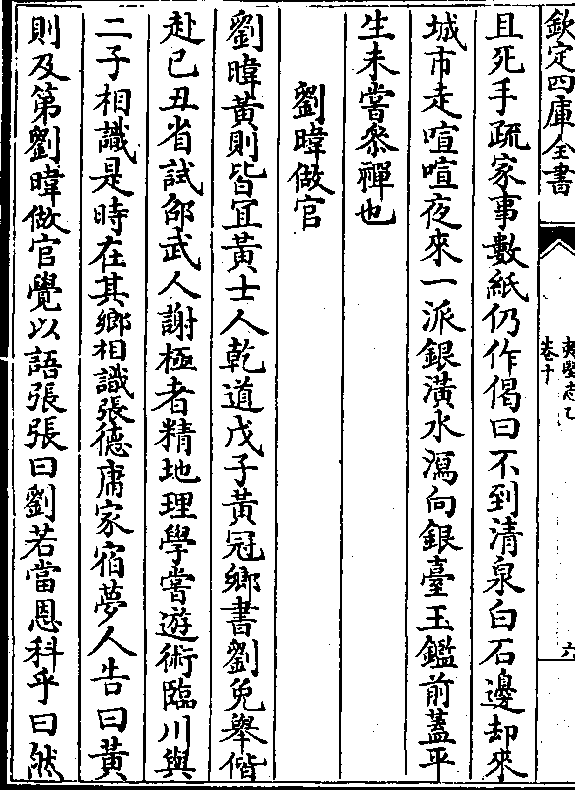 欽定四庫全書
夷堅志乙
卷十
六
且死手疏家事數紙仍作偈曰不到清泉白石邊却來
城市走喧喧夜來一派銀潢水瀉向銀臺玉鑑前蓋平
生未嘗參禪也
劉暐做官
劉暐黃則皆宜黃士人乾道戊子黃冠鄉書劉免舉偕
赴已丑省試邵武人謝極者精地理學嘗遊術臨川與
二子相識是時在其鄉相識張德庸家宿夢人告曰黃
則及第劉暐做官覺以語張張曰劉若當恩科乎曰然